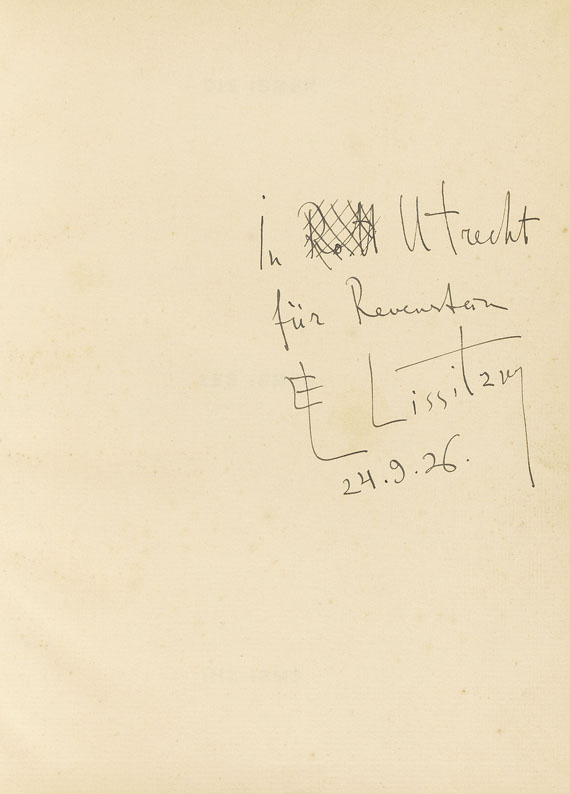 In Utrecht
für Revenstern
El Lissitzky
24.9.26.